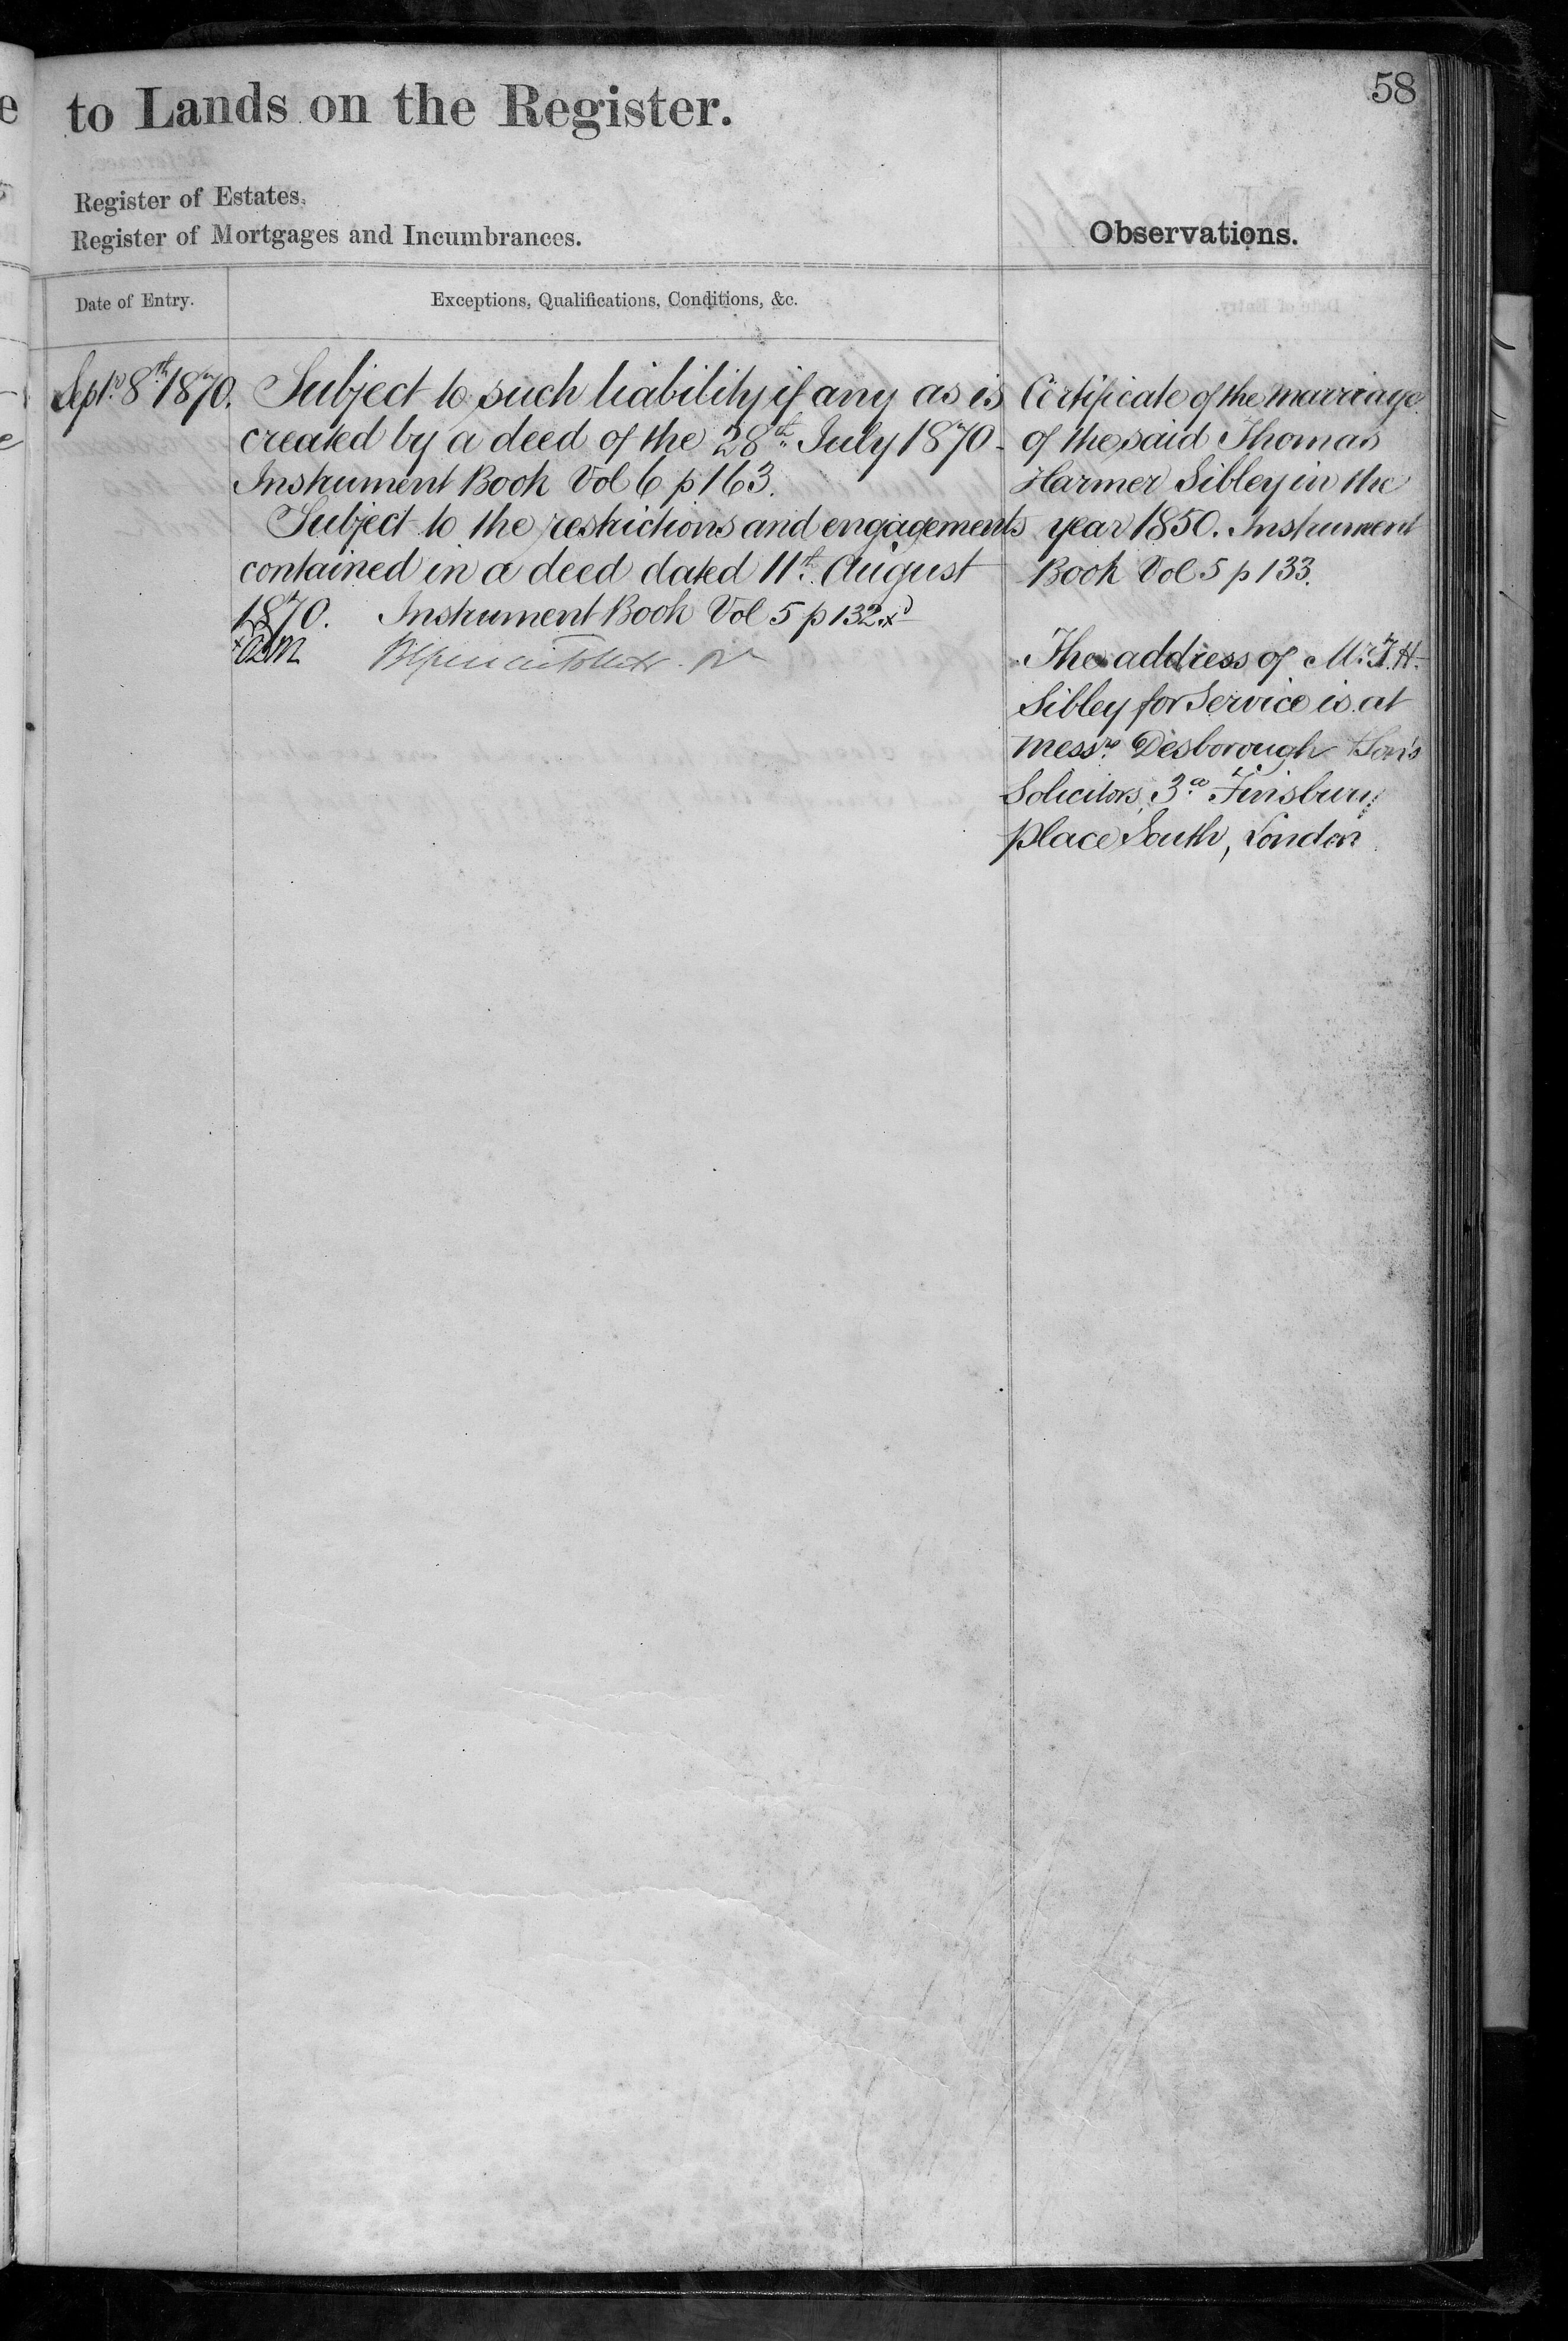 58
to Lands on the Register.
Register of Estates.
Register of Mortgages and Incumbrances.
Observations.
Date of Entry.
Exceptions, Qualifications, Conditions, &c.
Sept.r 8th 1870.
Subject to such liability if any as is
created by a deed of the 28th July 1870 -
Instrument Book Vol 6 p 163.
Subject to the restrictions and engagements
contained in a deed dated 11th August
1870. Instrument Book Vol 5 p 132
Certificate of the marriage
of the said Thomas
Harmer Sibley in the
year 1850. Instrument
Book Vol 5 p 133.
The address of Mr. T. H.
Sibley for Service is at
Messrs. Desborough & Son's
Solicitors, 3a Finsbury
place South, London